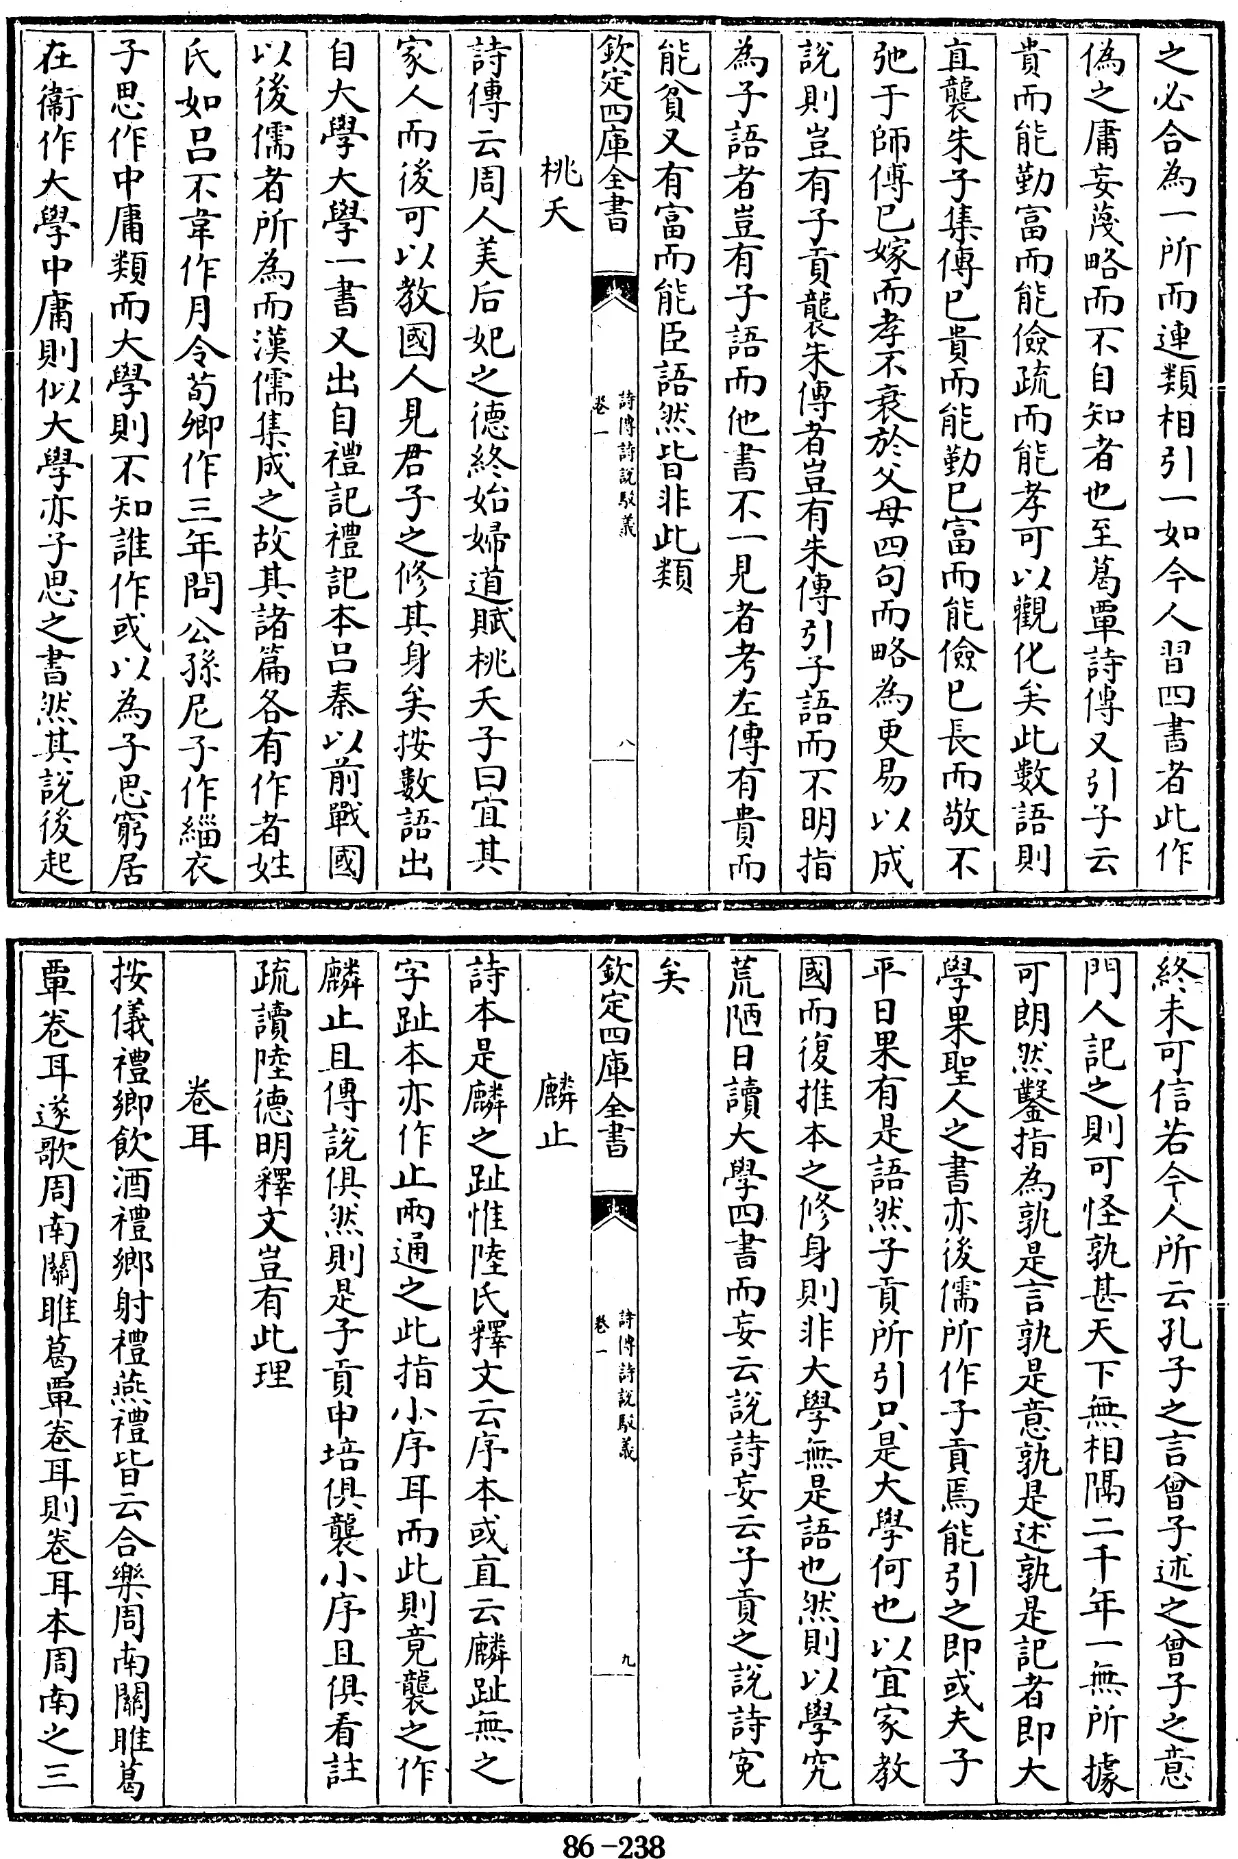 之必合為一所而連類相引一如今人習四書者此作
偽之庸妄蔑略而不自知者也至葛覃詩傳又引子云
貴而能勤富而能儉疏而能孝可以觀化矣此數語則
直襲朱子集傳已貴而能勤已富而能儉已長而敬不
弛于師傅已嫁而孝不衰於父母四句而略為更易以成
說則豈有子貢襲朱傳者豈有朱傳引子語而不明指
為子語者豈有子語而他書不一見者考左傳有貴而
能貧又有富而能臣語然皆非此類
欽定四庫全書
詩傳詩說駁義
卷一
八
桃夭
詩傳云周人美后妃之德終始婦道賦桃夭子曰宜其
家人而後可以教國人見君子之修其身矣按數語出
自大學大學一書又出自禮記禮記本呂秦以前戰國
以後儒者所為而漢儒集成之故其諸篇各有作者姓
氏如呂不韋作月令荀卿作三年問公孫尼子作緇衣
子思作中庸類而大學則不知誰作或以為子思窮居
在衞作大學中庸則似大學亦子思之書然其說後起
終未可信若今人所云孔子之言曾子述之曾子之意
門人記之則可怪孰甚天下無相隔二千年一無所據
可朗然鑿指為孰是言孰是意孰是述孰是記者即大
學果聖人之書亦後儒所作子貢焉能引之即或夫子
平日果有是語然子貢所引只是大學何也以宜家教
國而復推本之修身則非大學無是語也然則以學究
荒陋日讀大學四書而妄云說詩妄云子貢之說詩寃
矣
欽定四庫全書
詩傳詩說駁義
卷一
九
麟止
詩本是麟之趾惟陸氏釋文云序本或直云麟趾無之
字趾本亦作止兩通之此指小序耳而此則竟襲之作
麟止且傳說俱然則是子貢申培俱襲小序且俱看註
疏讀陸德明釋文豈有此理
卷耳
按儀禮鄉飲酒禮鄉射禮燕禮皆云合樂周南關雎葛
覃卷耳遂歌周南關雎葛覃卷耳則卷耳本周南之三
86-238